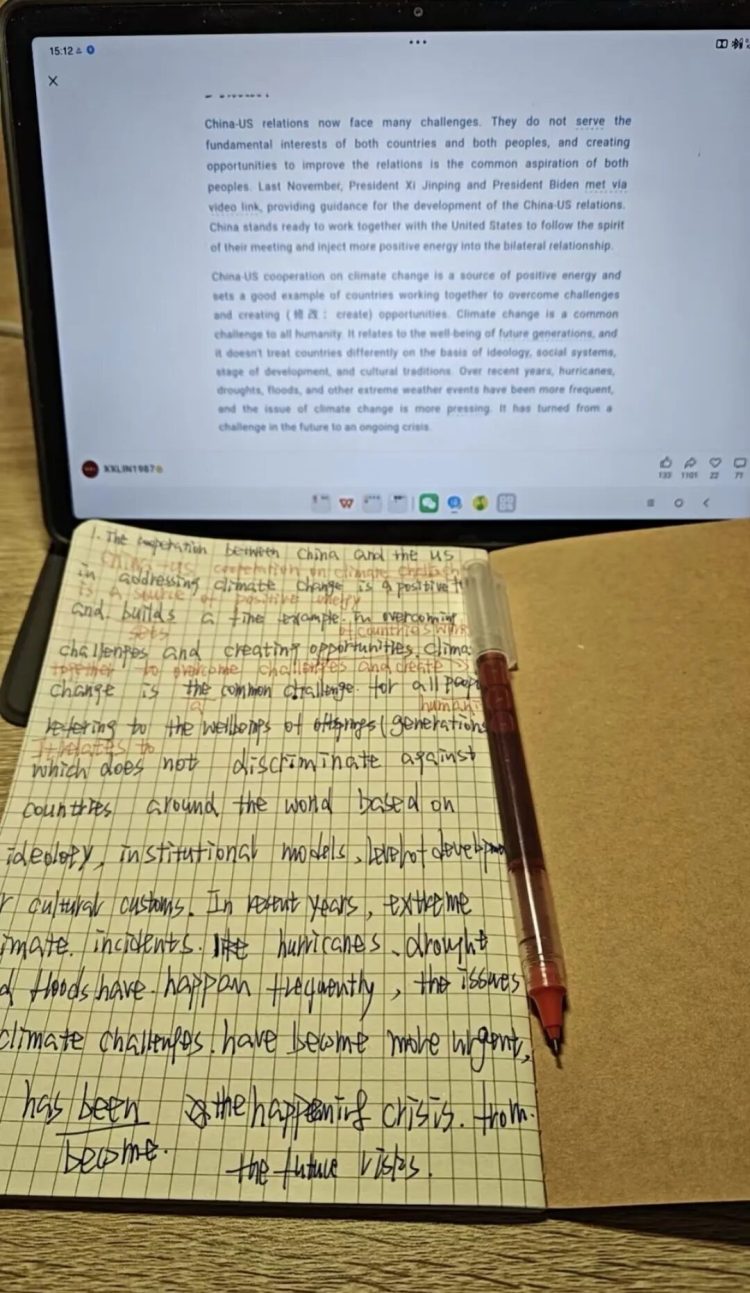 15:12
China-US relations now face many challenges. They do not serve the
fundamental interests of both countries and both peoples, and creating
opportunities to improve the relations is the common aspiration of both
peoples. Last November, President Xi Jinping and President Biden met via
video link, providing guidance for the development of the China-US relations.
China stands ready to work together with the United States to follow the spirit
of their meeting and inject more positive energy into the bilateral relationship.
China-US cooperation on climate change is a source of positive energy and
sets a good example of countries working together to overcome challenges
and creating (修改: create) opportunities. Climate change is a common
challenge to all humanity. It relates to the well-being of future generations, and
it doesn't treat countries differently on the basis of ideology, social systems,
stage of development, and cultural traditions. Over recent years, hurricanes,
droughts, floods, and other extreme weather events have been more frequent,
and the issue of climate change is more pressing. It has turned from a
challenge in the future to an ongoing crisis.
XXLIN1987
133 1101 22 71
1. The cooperation between China and the US
China-US cooperation on climate
in addressing climate change is a positive
is a source of positive energy
and builds a fine example in overcoming
sets of countries work
challenges and creating opportunities. clima
together to overcome challenges and create
change is the common challenge for all peop
a humani
refering to the wellbeings of offsprings (generations
It relates to
which does not discriminate against
countries around the world based on
ideology, institutional models, level of develop
r cultural customs. In recent years, extreme
imate incidents like hurricanes, drought
d floods have happen frequently, the issues
climate challenges have become more urgent,
has been the happening crisis from
become. the future risks.